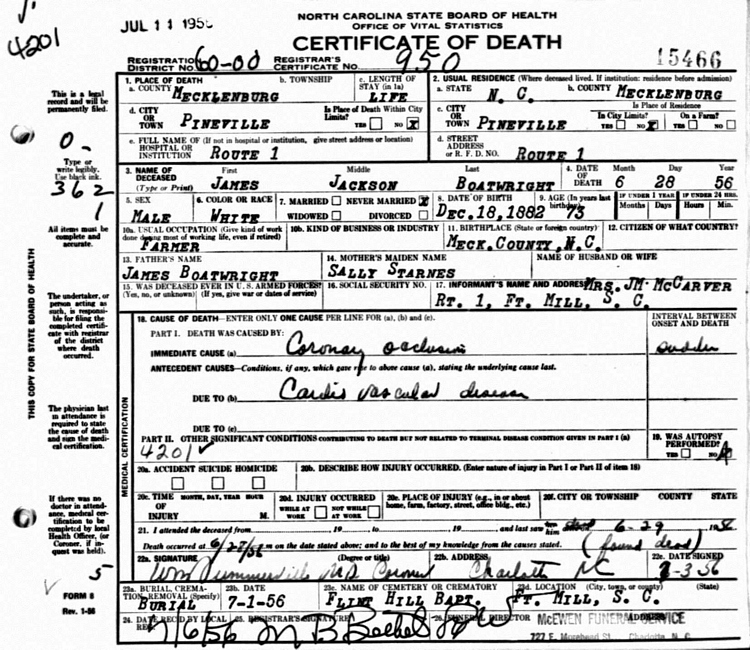 JUL 11 195
4201
NORTH CAROLINA STATE BOARD OF HEALTH
OFFICE OF VITAL STATISTICS
CERTIFICATE OF DEATH
REGISTRATION DISTRICT NO. 60-00 REGISTRAR'S CERTIFICATE NO. 950
15466
This is a legal record and will be permanently filed.
Type or write legibly. Use black ink.
0-
362
1
All items must be complete and accurate.
THIS COPY FOR STATE BOARD OF HEALTH
The undertaker, or person acting as such, is responsible for filing the completed certificate with registrar of the district where death occurred.
The physician last in attendance is required to state the cause of death and sign the medical certification.
If there was no doctor in attendance, medical certification to be completed by local Health Officer, (or Coroner, if inquest was held).
5
FORM 8
Rev. 1-56
1. PLACE OF DEATH
a. COUNTY MECKLENBURG
b. TOWNSHIP
c. LENGTH OF STAY (in 1a) LIFE
2. USUAL RESIDENCE (Where deceased lived. If institution: residence before admission)
a. STATE N. C.
b. COUNTY MECKLENBURG
d. CITY OR TOWN PINEVILLE
Is Place of Death Within City Limits? YES NO X
c. CITY OR TOWN PINEVILLE
Is Place of Residence
In City Limits? YES NO X
On a Farm? YES NO
e. FULL NAME OF (If not in hospital or institution, give street address or location) HOSPITAL OR INSTITUTION ROUTE 1
d. STREET ADDRESS OR R. F. D. NO. ROUTE 1
3. NAME OF DECEASED (Type or Print)
First JAMES Middle JACKSON Last BOATWRIGHT
4. DATE OF DEATH Month 6 Day 28 Year 56
5. SEX MALE
6. COLOR OR RACE WHITE
7. MARRIED NEVER MARRIED X
WIDOWED DIVORCED
8. DATE OF BIRTH DEC. 18, 1882
9. AGE (In years last birthday) 73
IF UNDER 1 YEAR Months Days
IF UNDER 24 HRS. Hours Min.
10a. USUAL OCCUPATION (Give kind of work done during most of working life, even if retired) FARMER
10b. KIND OF BUSINESS OR INDUSTRY
11. BIRTHPLACE (State or foreign country) MECK. COUNTY, N.C.
12. CITIZEN OF WHAT COUNTRY?
13. FATHER'S NAME JAMES BOATWRIGHT
14. MOTHER'S MAIDEN NAME SALLY STARNES
NAME OF HUSBAND OR WIFE
15. WAS DECEASED EVER IN U. S. ARMED FORCES? (Yes, no, or unknown) (If yes, give war or dates of service)
16. SOCIAL SECURITY NO.
17. INFORMANT'S NAME AND ADDRESS MRS. JM- MCCARVER
RT. 1, FT. MILL, S. C.
MEDICAL CERTIFICATION
18. CAUSE OF DEATH—ENTER ONLY ONE CAUSE PER LINE FOR (a), (b) and (c).
INTERVAL BETWEEN ONSET AND DEATH
PART I. DEATH WAS CAUSED BY:
IMMEDIATE CAUSE (a) Coronary occlusion sudden
ANTECEDENT CAUSES—Conditions, if any, which gave rise to above cause (a), stating the underlying cause last.
DUE TO (b) Cardio vascular disease
DUE TO (c)
PART II. OTHER SIGNIFICANT CONDITIONS CONTRIBUTING TO DEATH BUT NOT RELATED TO TERMINAL DISEASE CONDITION GIVEN IN PART I (a)
4201 ✓
19. WAS AUTOPSY PERFORMED?
YES NO
20a. ACCIDENT SUICIDE HOMICIDE
20b. DESCRIBE HOW INJURY OCCURRED. (Enter nature of injury in Part I or Part II of item 18)
20c. TIME OF INJURY MONTH, DAY, YEAR HOUR M.
20d. INJURY OCCURRED WHILE AT WORK NOT WHILE AT WORK
20e. PLACE OF INJURY (e.g., in or about home, farm, factory, street, office bldg., etc.)
20f. CITY OR TOWNSHIP COUNTY STATE
21. I attended the deceased from 19 to 19 and last saw him 6-29
Death occurred at 6/28/56 m on the date stated above; and to the best of my knowledge from the causes stated. (found dead)
22a. SIGNATURE (Degree or title) MD Coroner
22b. ADDRESS Charlotte NC
22c. DATE SIGNED 7-3-56
23a. BURIAL, CREMATION REMOVAL (Specify) BURIAL
23b. DATE 7-1-56
23c. NAME OF CEMETERY OR CREMATORY FLINT HILL BAPT.
23d. LOCATION (City, town, or county) (State) FT. MILL, S. C.
24. DATE REC'D BY LOCAL REG. 7/6/56
25. REGISTRAR'S SIGNATURE
26. FUNERAL DIRECTOR ADDRESS
McEWEN FUNERAL SERVICE
727 E. Morehead St. Charlotte, N. C.